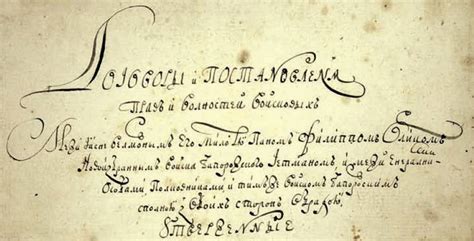 Договоры и Постановленя
Правъ и волностей Войсковыхъ
Межи Ясне велможным Его Паном Филиппом Орликом
Новоизбранным Войска Запорозкого Гетманом и межи Енерални
Особами Полковниками и тимже Войском Запорозким
сполною з обоих сторон обрадою